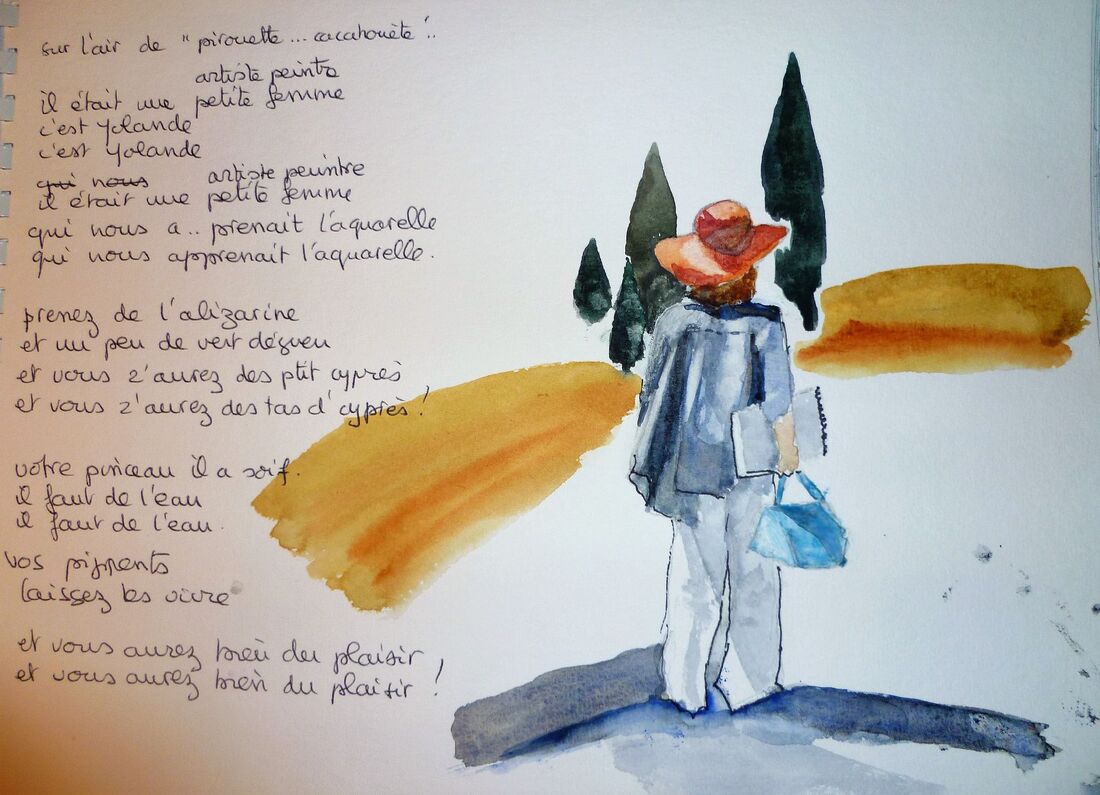 sur l'air de "pirouette... cacahouète"..
artiste peintre
il était une petite femme
c'est Yolande
c'est Yolande
qui nous artiste peintre
il était une petite femme
qui nous a.. prenait l'aquarelle
qui nous apprenait l'aquarelle.
prenez de l'alizarine
et un peu de vert dégueu
et vous z'aurez des ptit cyprès
et vous z'aurez des tas d'cyprès !
votre pinceau il a soif.
il faut de l'eau
il faut de l'eau.
vos pigments
laissez les vivre
et vous aurez bien du plaisir
et vous aurez bien du plaisir !